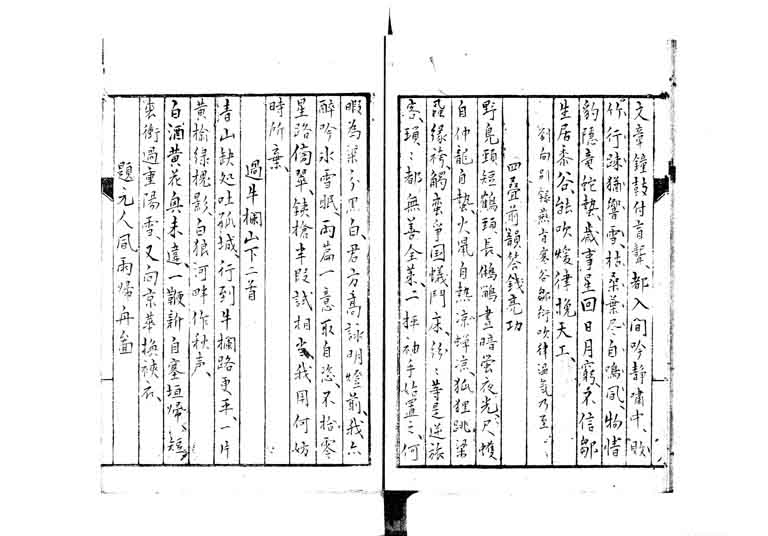 文章鐘鼓付盲聾、都入閒吟靜嘯中、敗
竹行疎猶響雪、枯桑葉尽自鳴風、物情
豹隱竜蛇蟄、歲事星回日月窮、不信鄒
生居黍谷、能吹煖律挽天工、
劉向別錄燕有寒谷鄒衍吹律溫氣乃至、
四疊前韻答錢亮功
野鳧頸短鶴頸長、鵂鶹晝暗螢夜光、尺蠖
自伸龍自蟄火鼠自熱涼蟬涼狐狸跳梁
緣袴觸蠻爭国蟻鬥床、紛〻等是逆旅
客、瑣〻都無善全策、二揮袖手姑置之、何
暇為梁分黑白、君方高詠明燈前、我亦
醉吟氷雪眠、兩篇一意取自恣、不拾零
星路傍翠、鐵槍半段試相當我用何妨
時所棄、
過牛欄山下二首
青山缺処吐孤城、行到牛欄路更平、一片
黄榆綠槐影、白狼河畔作秋声、
白酒黄花與未違一鞭新自塞垣歸、短
衣衝過重陽雪、又向京華換裌衣、
題元人風雨歸舟畫